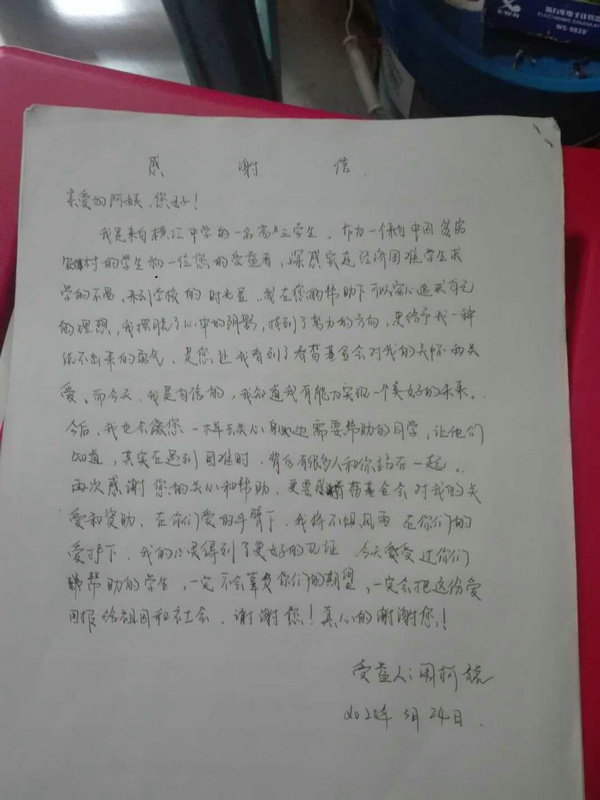 ELECTRONIC CALCULATOR
WS-8828
感谢信
亲爱的阿姨，您好！
我是来自横江中学的一名高三学生，作为一个来自中国贫困
村的学生和一位您的受益者，深感家庭经济困难学生求
学的不易，来到学校的时光里，我在您的帮助下可以安心追求自己
的理想，我摆脱了心中的阴影，找到了努力的方向，更给予我一种
说不出来的勇气，是您让我看到了基金会对我的关怀和关
爱，而今天，我是自信的，我知道我有能力实现一个美好的未来。
今后，我也会像您一样去关心身边需要帮助的同学，让他们
知道，其实在遇到困难时，背后有很多人和你站在一起。
再次感谢您的关心和帮助，更要感谢基金会对我的关
爱和资助，在你们爱的手臂下，我将不惧风雨，在你们的
爱护下，我的心灵得到了更好的见证，今天感受过你们
帮助的学生，一定不会辜负你们的期望，一定会把这份爱
回报给祖国和社会，谢谢您！真心的谢谢您！
受益人：周柯
2020年3月24日.